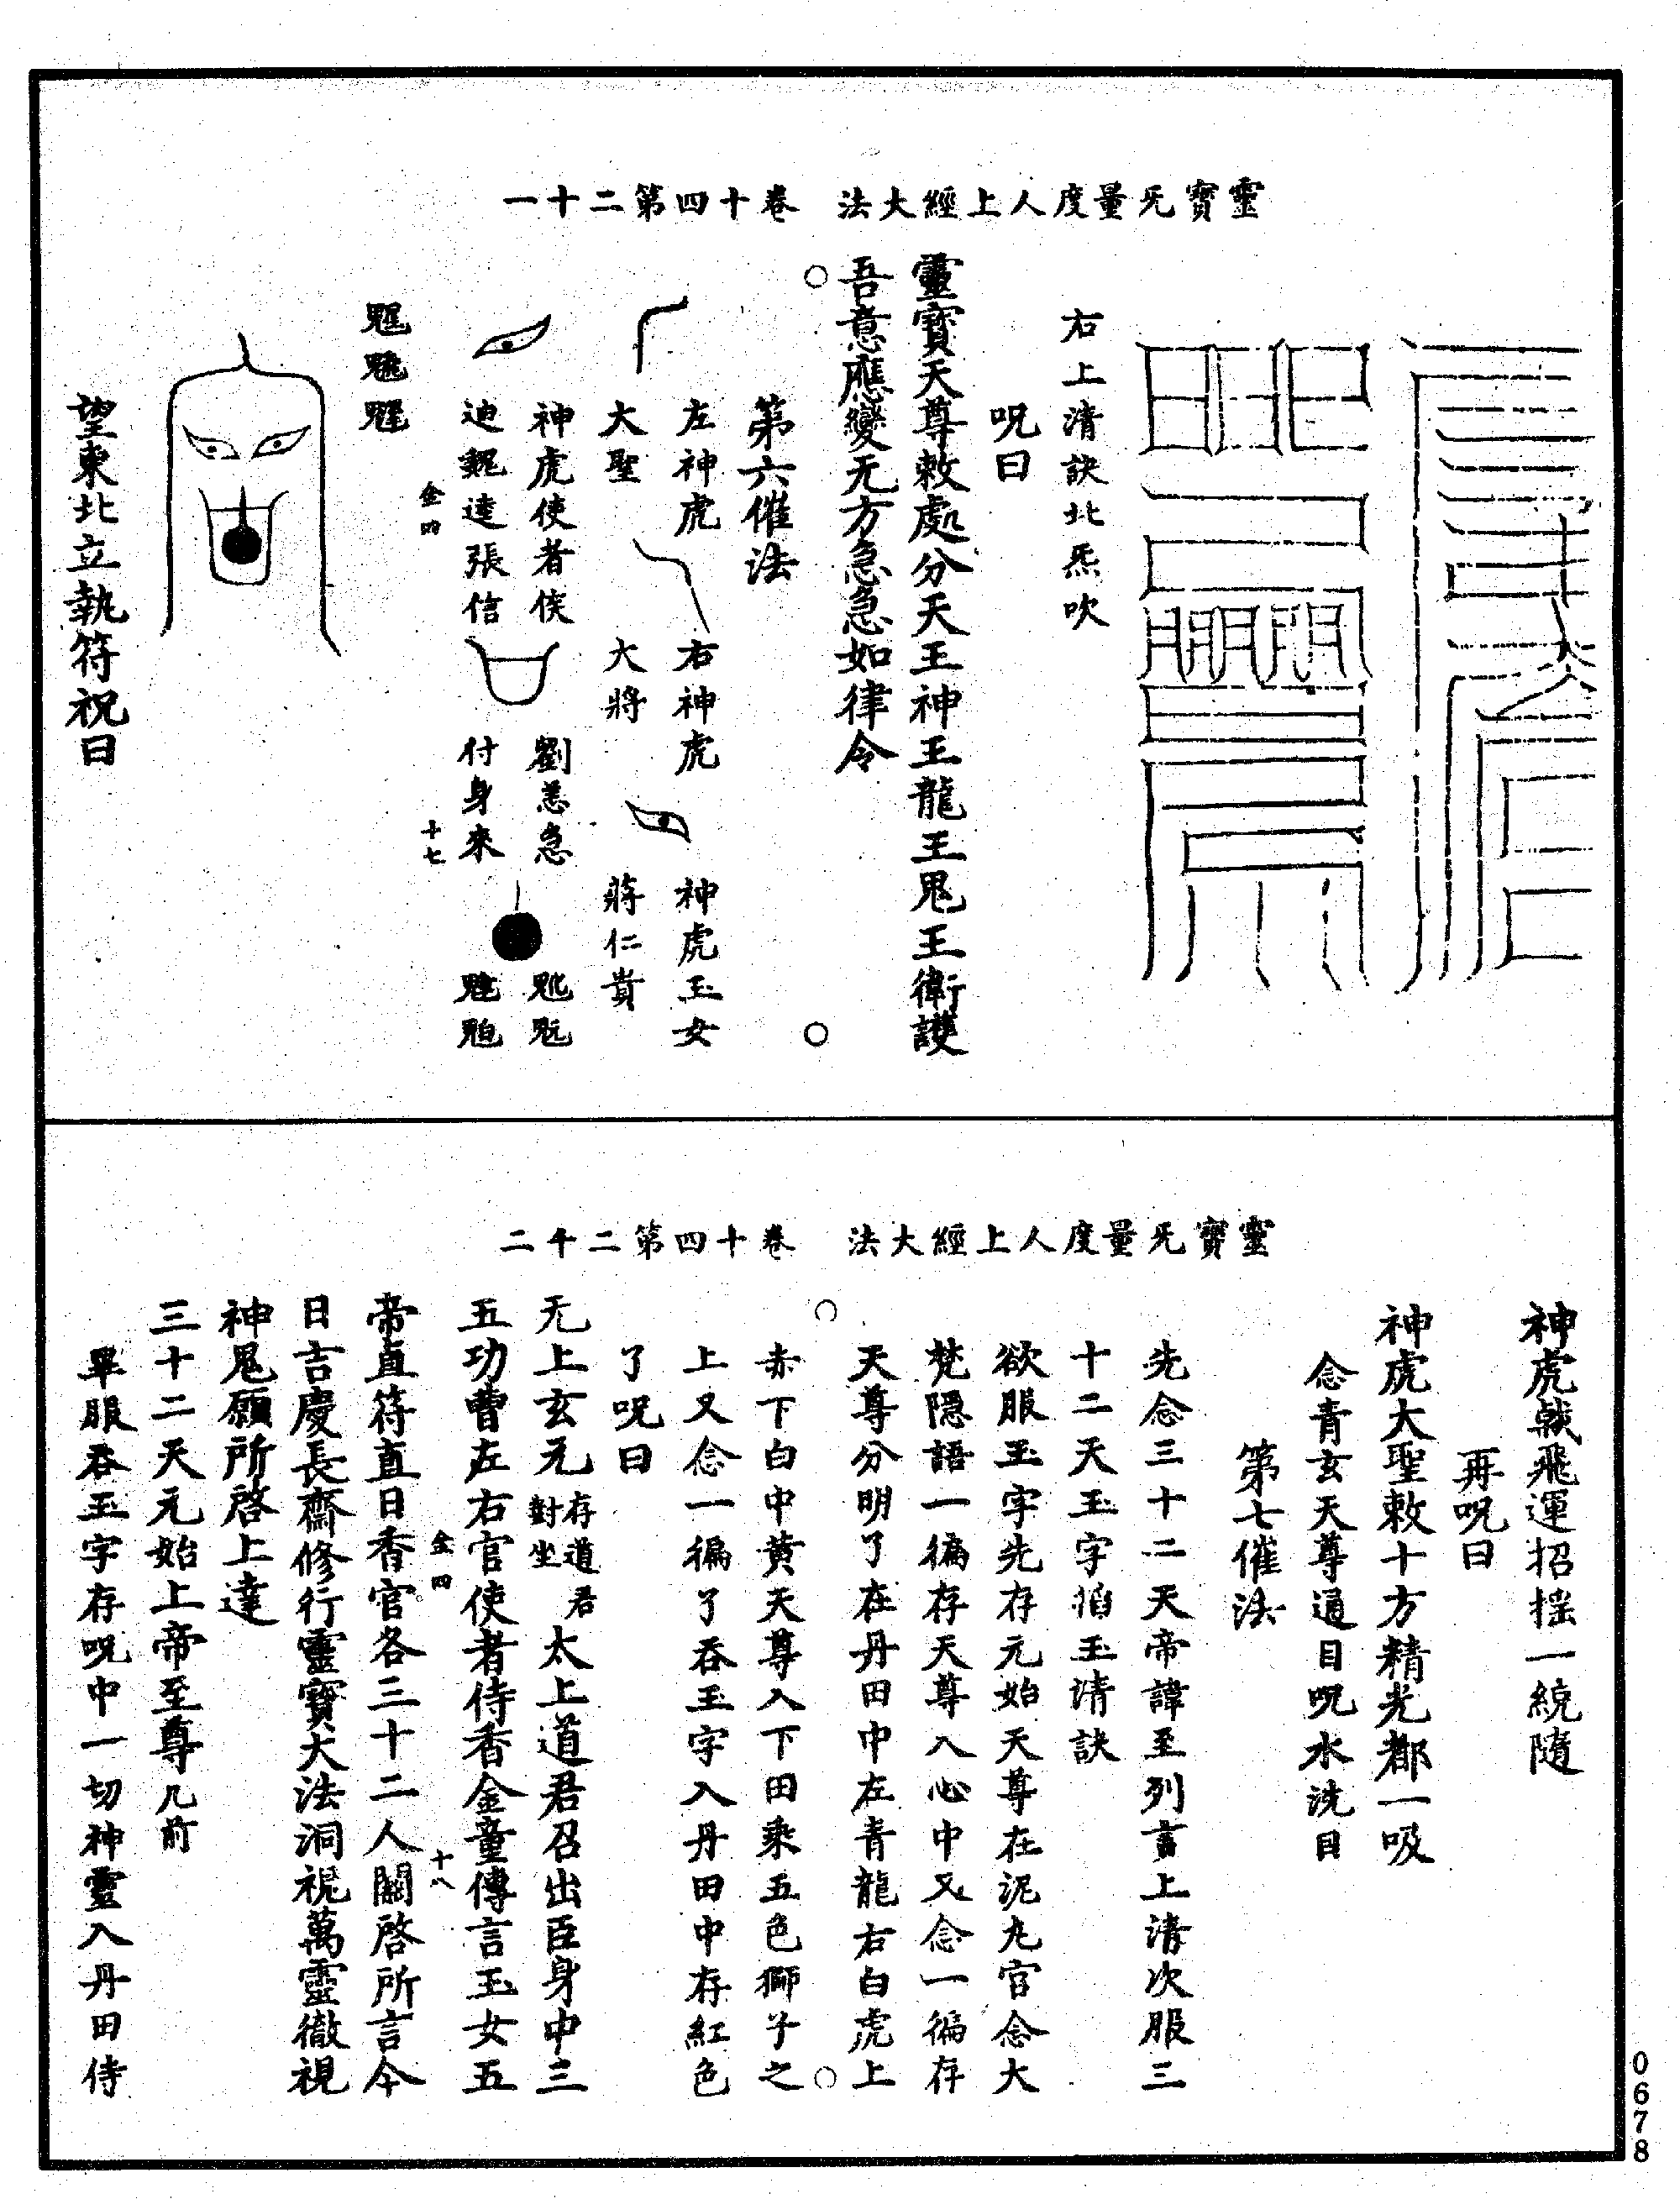 靈寶无量度人上經大法　卷十四第二十一
右上清訣北炁吹
呪曰
靈寶天尊敕處分天王神王龍王鬼王衛護
吾意應變无方急急如律令
第六催法
左神虎
大聖
右神虎
大將
神虎玉女
蔣仁貴
神虎使者侯
迪魏達張信
劉恙急
付身來
金四
十七
望東北立執符祝曰
靈寶无量度人上經大法　卷十四第二十二
神虎戟飛運招搖一統隨
再呪曰
神虎大聖敕十方精光都一吸
念青玄天尊通目呪水洗目
第七催法
先念三十二天帝諱至列言上清次服三
十二天玉字掐玉清訣
欲服玉字先存元始天尊在泥丸官念大
梵隱語一徧存天尊入心中又念一徧存
天尊分明了在丹田中左青龍右白虎上
赤下白中黄天尊入下田乘五色獅子之
上又念一徧了吞玉字入丹田中存紅色
了呪曰
无上玄元存道君對坐太上道君召出臣身中三
五功曹左右官使者侍香金童傳言玉女五
金四
十八
帝直符直日香官各三十二人關啓所言今
日吉慶長齋修行靈寶大法洞視萬靈徹視
神鬼願所啓上達
三十二天元始上帝至尊几前
畢服吞玉字存呪中一切神靈入丹田侍
0678